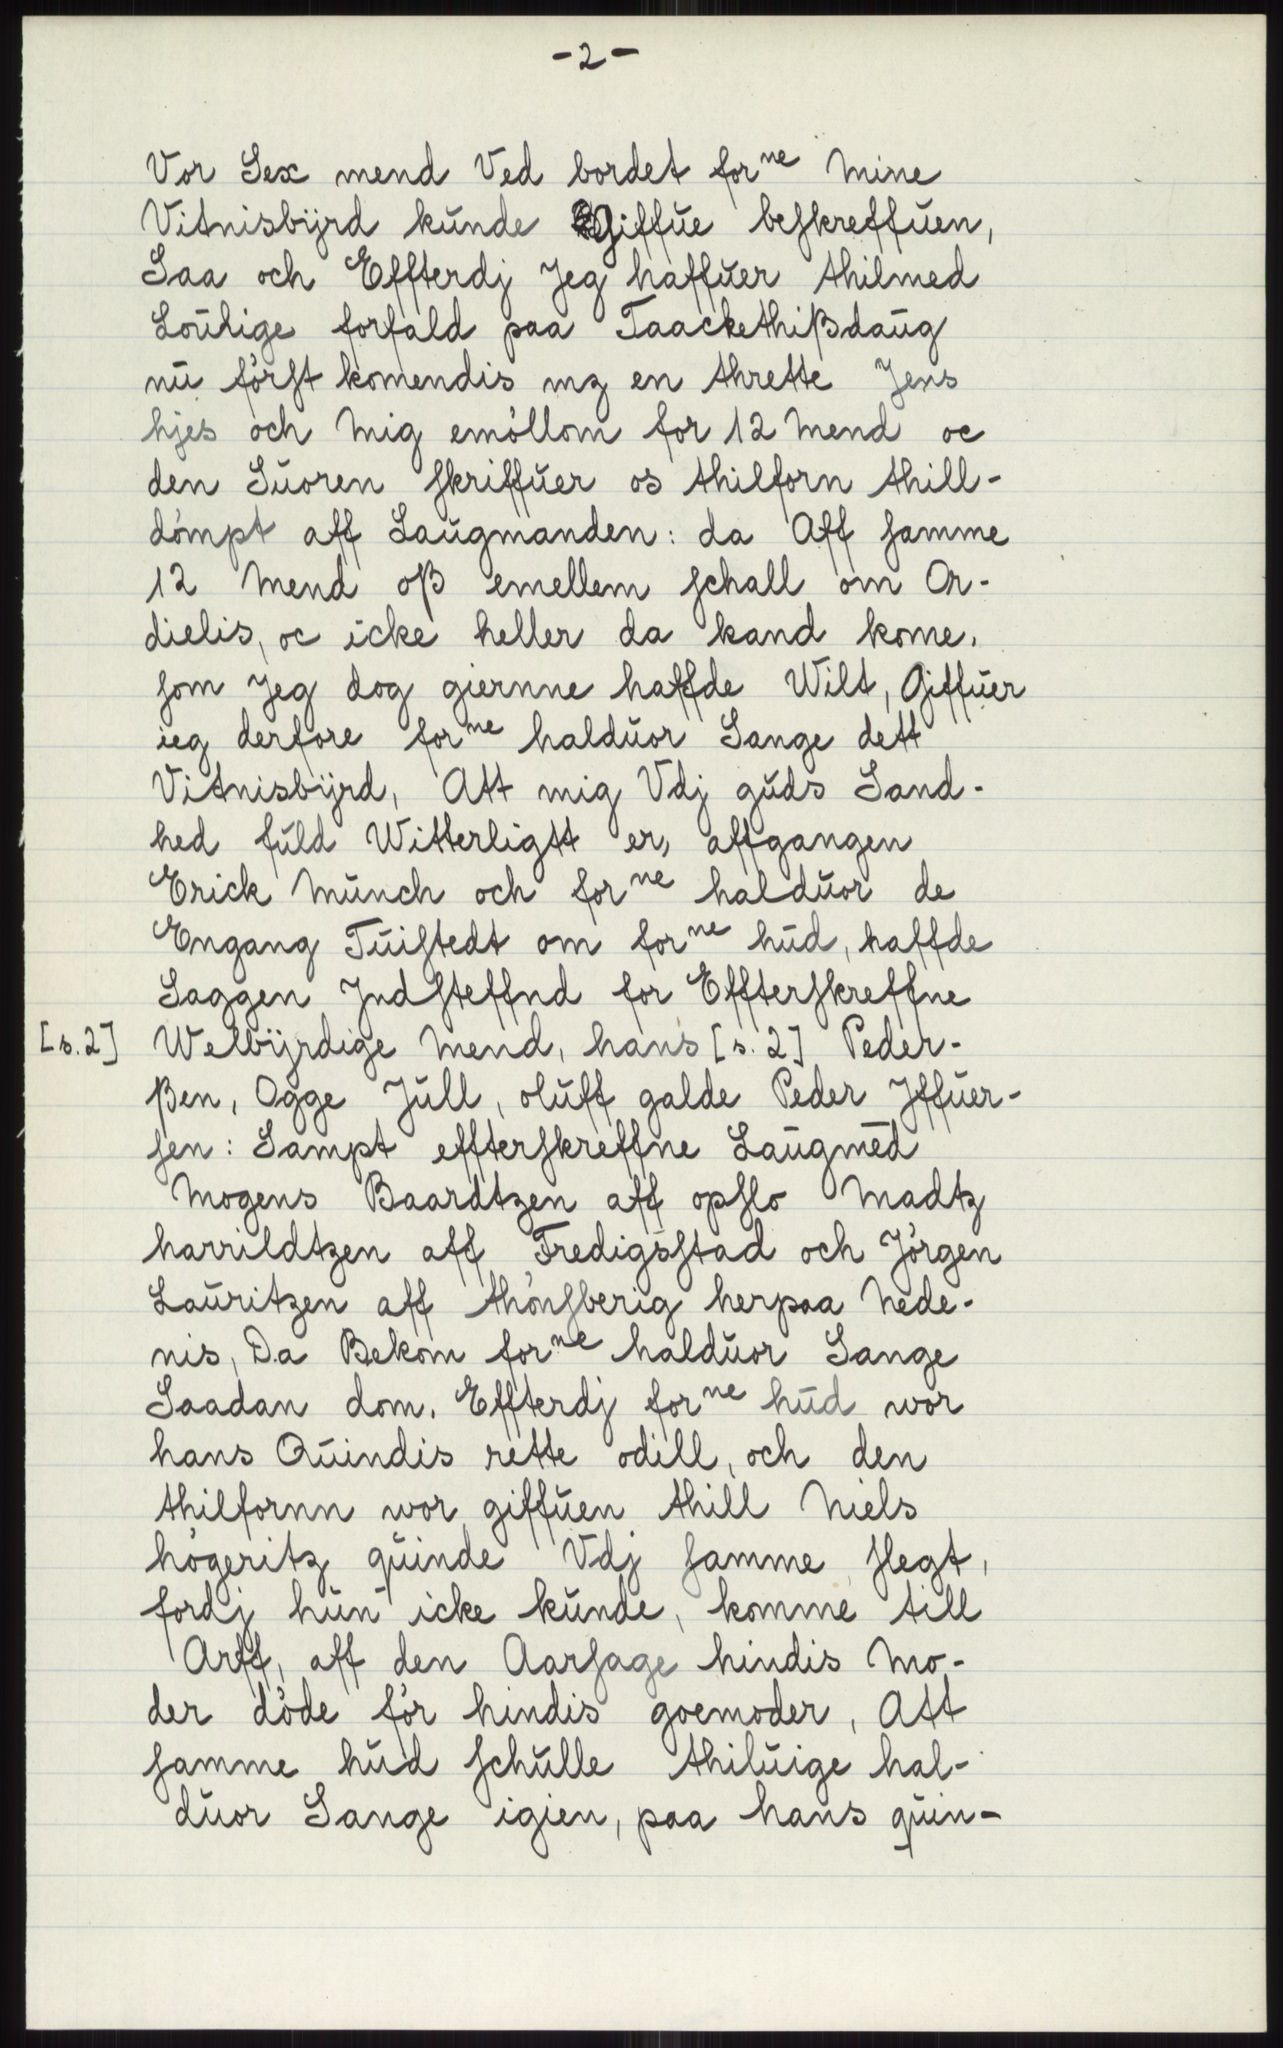 -2-
Vor Sex mend Ved bordet forⁿᵉ Mine
Vitnisbÿrd kunde Giffue beskreffuen,
Saa och Effterdj Jeg haffuer thilmed
Loulige forfald paa Taackethißdaug
nu først komendis mz en thrette Jens
hjes och Mig emøllom for 12 Mend oc
den Suoren skriffuer os thilforn thill-
dømpt aff Laugmanden: da Aff samme
12 Mend oß emellem schall om Or-
dielis, oc icke heller da kand kome.
som Jeg dog giernne haffde Wilt, Giffuer
ieg derfore forⁿᵉ halduor Sange dett
Vitnisbÿrd, Att mig Vdj guds Sand-
hed fuld Witterligtt er, affgangen
Erick Munch och forⁿᵉ halduor de
Engang Tuistedt om forⁿᵉ hud, haffde
Saggen Jndsteffnd for Effterskreffne
[s.2] Welbÿrdige Mend, hans [s.2] Peder-
ßen, Ogge Jull, oluff galde Peder Jffuer-
sen: Sampt effterskreffne Laugmēd
Mogens Baardtzen aff opslo Madtz
harrildtzen aff Fredigsstad och Jørgen
Lauritzen aff thønsberig herpaa Nede-
nis, Da Bekom forⁿᵉ halduor Sange
Saadan dom. Effterdj forⁿᵉ hud wor
hans Quindis rette odill, och den
thilfornn wor giffuen thill Niels
høgeritz quinde Vdj samme slegt,
fordj hun icke kunde, komme till
Arff, aff den Aarsage hindis Mo-
der døde før hindis goemoder, Att
samme hud schulle thiluige hal-
duor Sange igien, paa hans quin-